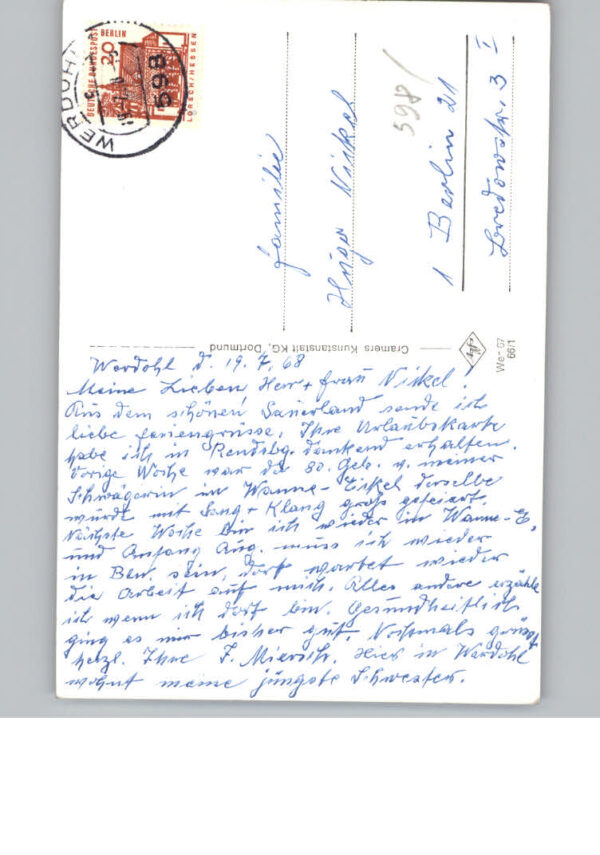 DEUTSCHE BUNDESPOST BERLIN
20
LORSCH/HESSEN
WERDOHL
598
598
Familie
Hugo Nickel
1 Berlin 21
Bredowstr. 3 I
Cramers Kunstanstalt KG, Dortmund
Wer 67
66/1
Werdohl d. 19.7.68
Meine Lieben Herr + Frau Nickel!
Aus dem schönen Sauerland sende ich
liebe Feriengrüsse. Ihre Urlaubskarte
habe ich in Rendsbg. dankend erhalten.
Vorige Woche war der 80. Geb. v. meiner
Schwägerin in Wanne-Eickel derselbe
wurde mit Sang + Klang groß gefeiert.
Nächste Woche bin ich wieder in Wanne-E,
und Anfang Aug. muss ich wieder
in Bln. sein, dort wartet wieder
die Arbeit auf mich. Alles andere erzähle
ich wenn ich dort bin. Gesundheitlich
ging es mir bisher gut. Nochmals grüsst
herzl. Ihre F. Miersch. Hier in Werdohl
wohnt meine jüngste Schwester.